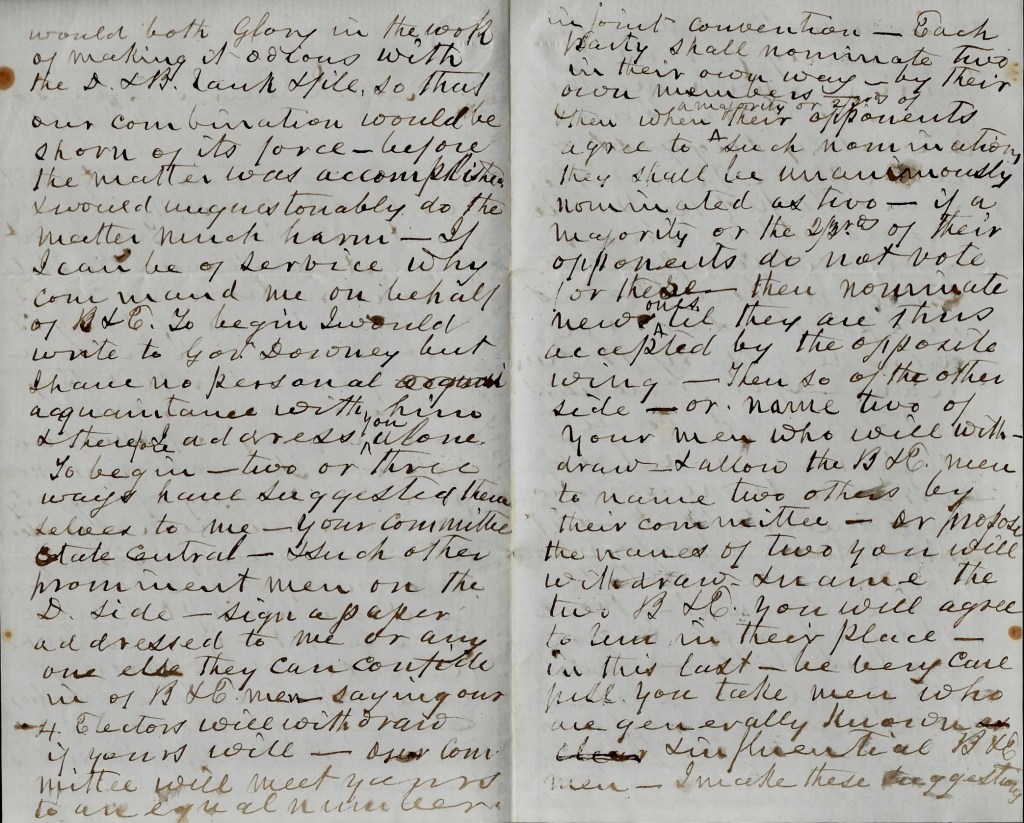 would both Glory in the work
of making it odious with
the D. & B. rank & file, so that
our combination would be
shorn of its force – before
the matter was accomplished
& would unquestonably do the
matter much harm – If
I can be of service why
command me on behalf
of B & E. To begin I would
write to Gov Downey but
I have no personal
acquaintance with him
& therefore I address you alone.
To begin – two or three
ways have suggested them
selves to me – your committee
State Central – & such other
prominent men on the
D. side – sign a paper
addressed to me or any
one else they can confide
in of B & E. men saying our
4 Electors will withdraw
if yours will – our com
mittee will meet yours
to an equal number
in joint convention – Each
Party shall nominate two
in their own way – by their
own members
a majority or 2/3rds of
& then when their opponents
agree to such nomination,
they shall be unanimously
nominated as two – if a
majority or the 2/3rds of their
opponents do not vote
for these – then nominate
new ones til they are thus
accepted by the opposite
wing – Then so of the other
side – or name two of
your men who will with-
draw – & allow the B & E. men
to name two others by
their committee – or propose
the names of two you will
withdraw – & name the
two B & E. you will agree
to run in their place –
in this last – be very care
full you take men who
are generally known
clear & influential B & E
men – I make these suggestions